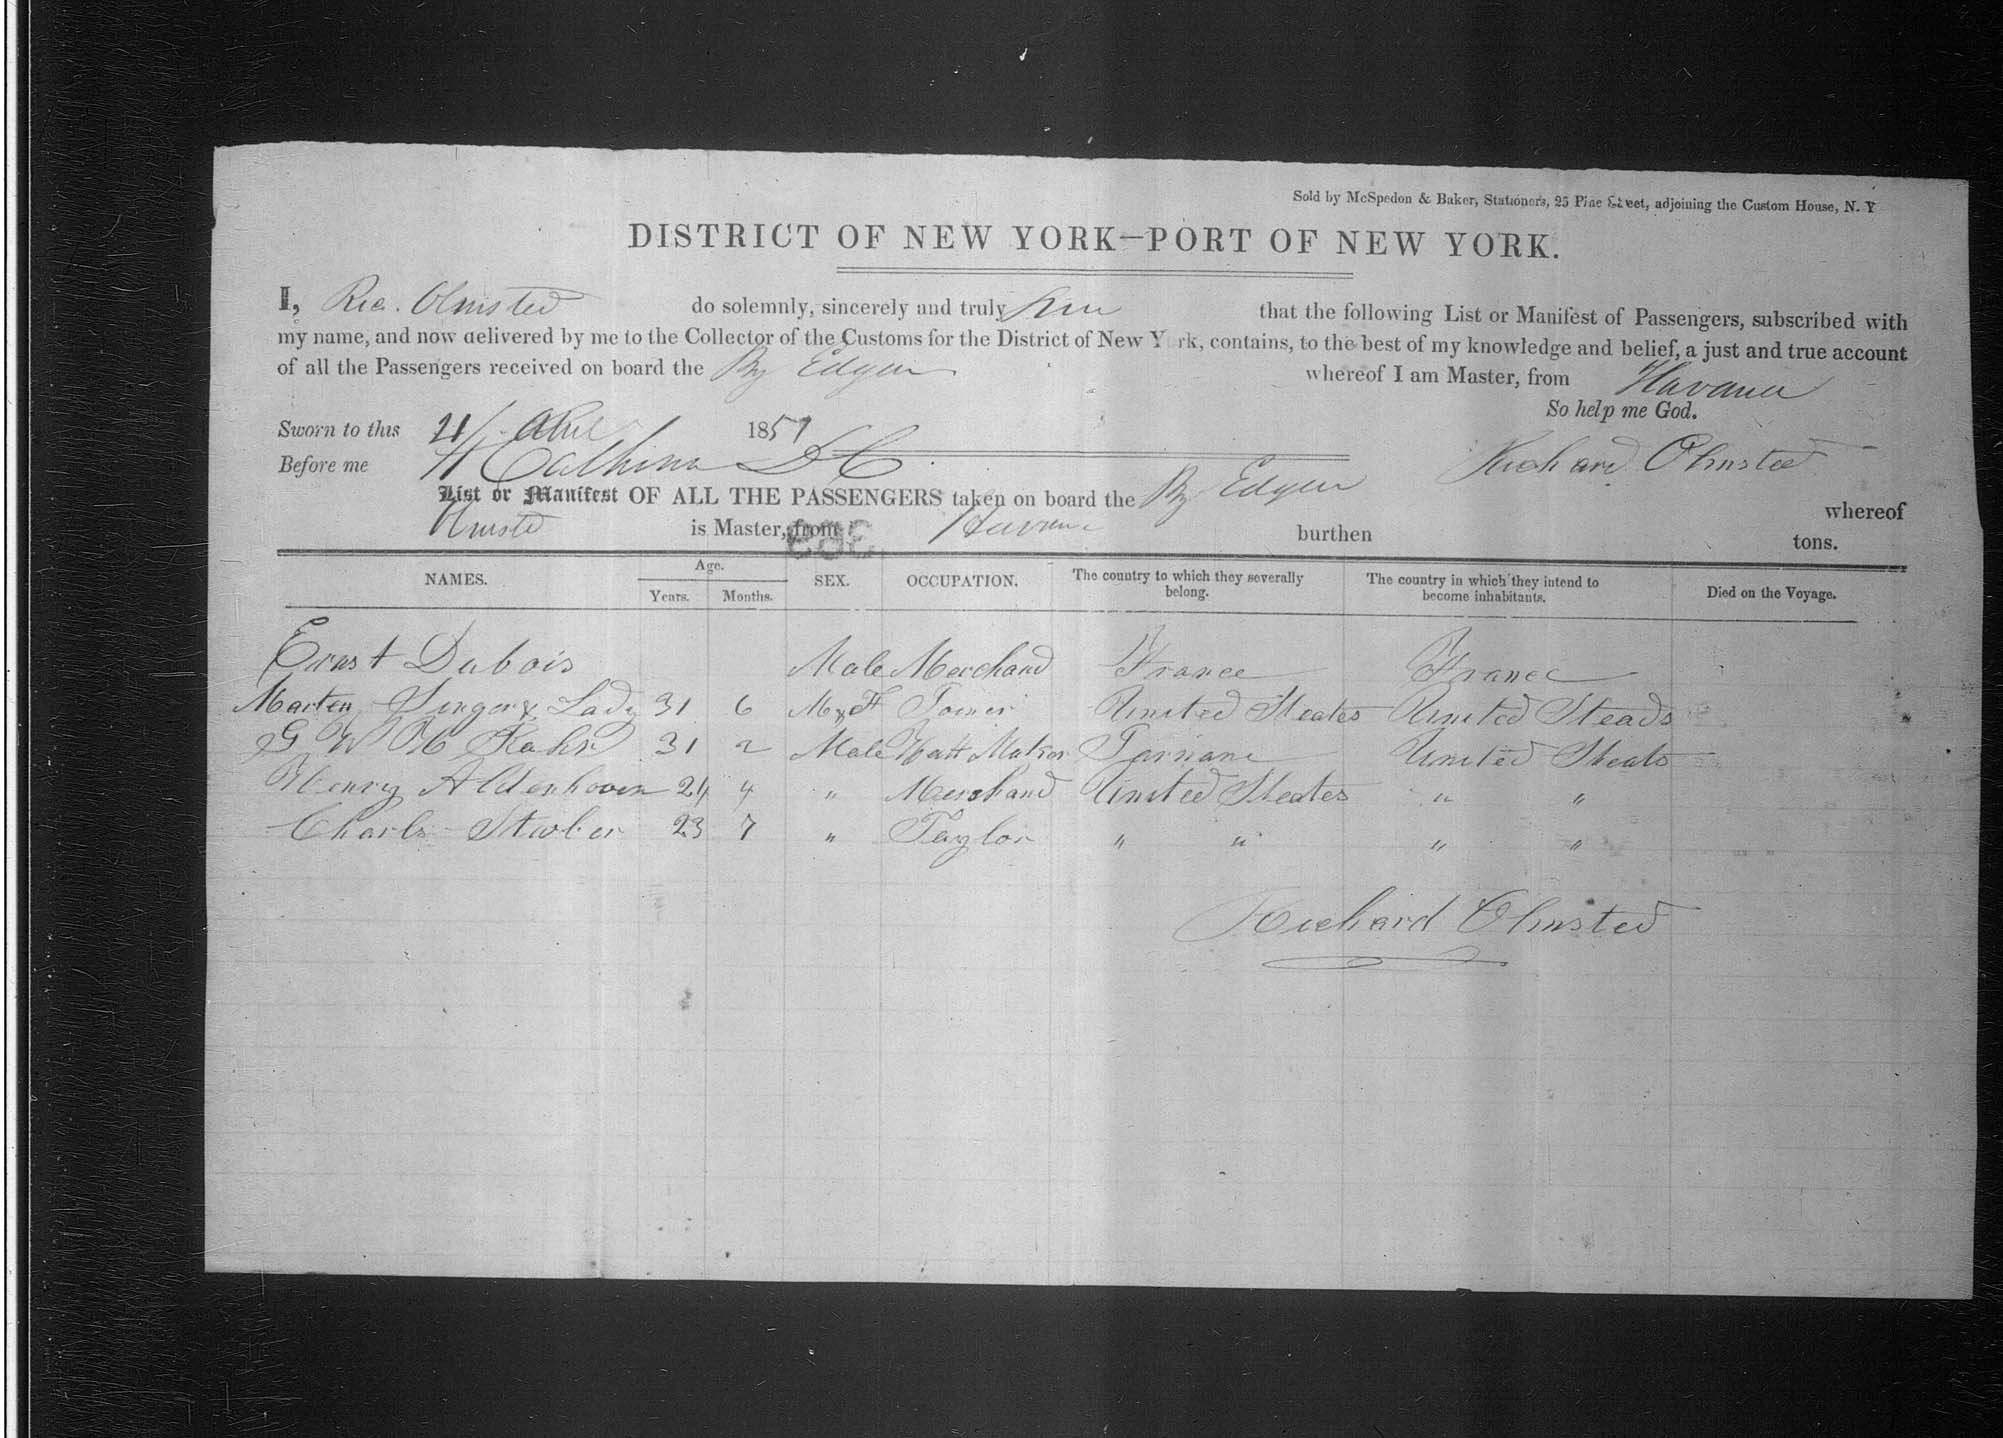 Sold by McSpedon & Baker, Stationers, 25 Pine Street, adjoining the Custom House, N. Y
DISTRICT OF NEW YORK—PORT OF NEW YORK.
I, Ric. Olmsted do solemnly, sincerely and truly that the following List or Manifest of Passengers, subscribed with
my name, and now delivered by me to the Collector of the Customs for the District of New York, contains, to the best of my knowledge and belief, a just and true account
of all the Passengers received on board the Bg Edgar whereof I am Master, from Havana
So help me God.
Sworn to this 21 1851
Before me Richard Olmsted
List or Manifest OF ALL THE PASSENGERS taken on board the Bg Edgar whereof
Olmsted is Master, from Havana burthen tons.
NAMES. Age. Years. Months. SEX. OCCUPATION. The country to which they severally belong. The country in which they intend to become inhabitants. Died on the Voyage.
Ernst Dubois Male Merchand France France
Marten Singer & Lady 31 6 M & F United Steates United Steads
G W H Rahr 31 2 Male Hatt Maker United Steats
Henry Aldenhoven 24 4 " Merchand United Steates " "
Charls Stuber 23 7 " Taylor " " " "
Richard Olmsted